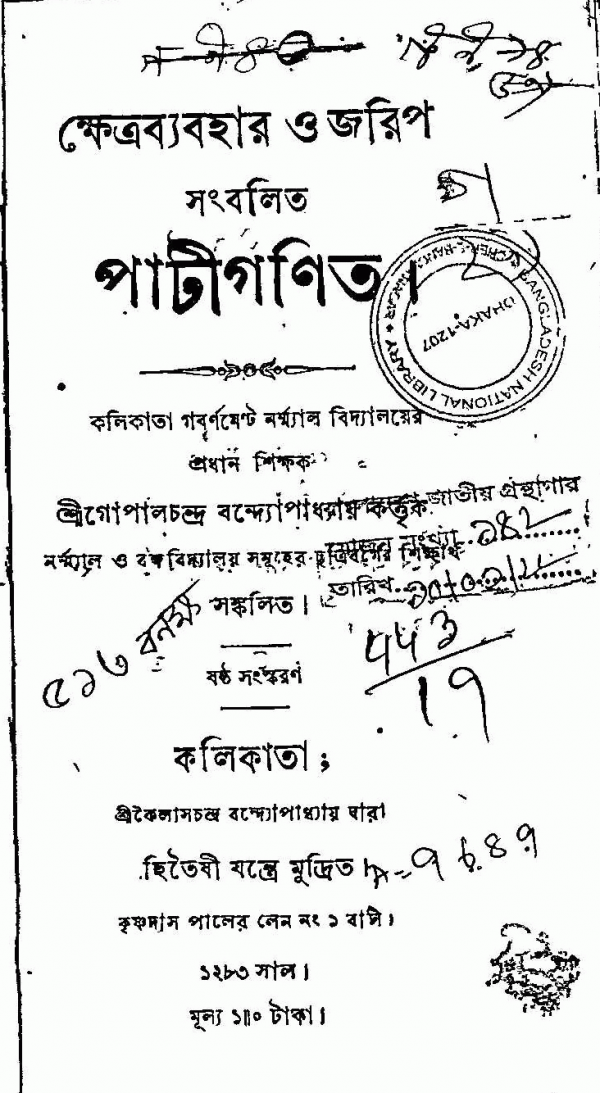 ক্ষেত্রব্যবহার ও জরিপ
সংবলিত
পাটীগণিত।
BANGLADESH NATIONAL LIBRARY
DHAKA-1207
কলিকাতা গবর্ণমেণ্ট নর্ম্ম্যাল বিদ্যালয়ের
প্রধান শিক্ষক
শ্রীগোপালচন্দ্র বন্দ্যোপাধ্যায় কর্ত্তৃক
জাতীয় গ্রন্থাগার
নর্ম্ম্যাল ও বঙ্গবিদ্যালয় সমূহের ছাত্রবর্গের শিক্ষার্থ
তারিখ
সঙ্কলিত।
ষষ্ঠ সংস্করণ
কলিকাতা;
শ্রীকৈলাসচন্দ্র বন্দ্যোপাধ্যায় দ্বারা
হিতৈষী যন্ত্রে মুদ্রিত
কৃষ্ণদাস পালের লেন নং ১ বাটী।
১২৮৩ সাল।
মূল্য ১॥০ টাকা।